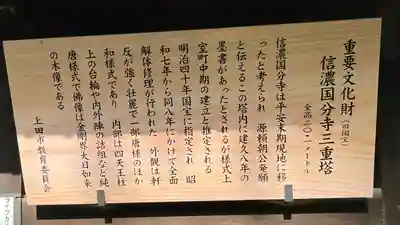 重要文化財
（旧国宝）
信濃国分寺三重塔
全高二〇・一メートル
信濃国分寺は平安末期現地に移
ったと考えられ 源頼朝公発願
と伝えるこの塔内に建久八年の
墨書があったとされるが様式上
室町中期の建立と推定される
明治四十年国宝に指定され 昭
和七年から同八年にかけて全面
解体修理が行われた 外観は軒
反が強く壮麗で一部唐様のほか
和様式であり 内部は四天王柱
上の台輪や内外陣の詰組など純
唐様式で佛像は金剛界大日如来
の木像である
上田市教育委員会